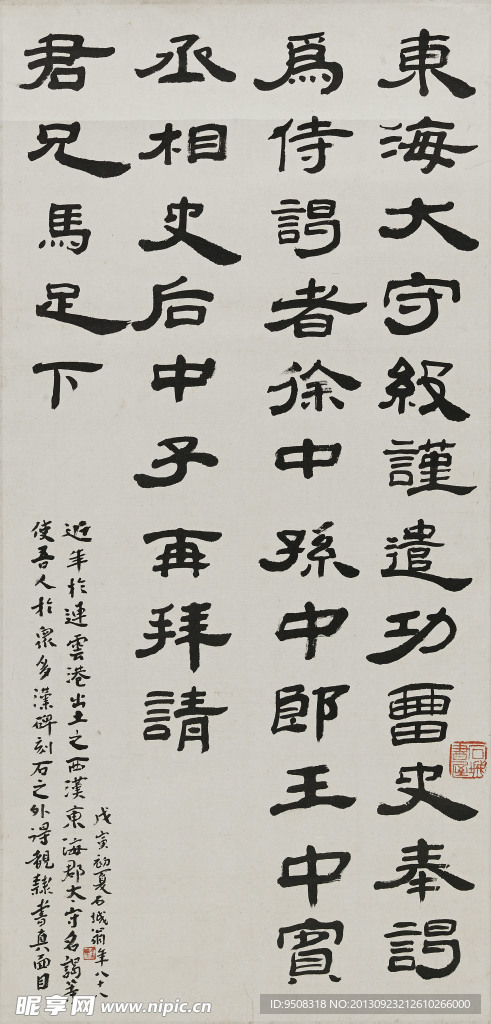 東海大守級謹遣功曹史奉謁
為侍謁者徐中孫中郎王中賓
丞相史后中子再拜請
君兄馬足下
近年於連雲港出土之西漢東海郡太守名謁等
使吾人於眾多漢碑刻石之外得觀隸書真面目
戊寅初夏石城翁年八十八
昵享网 www.nipic.cn
ID:9508318 NO:20130923212610266000